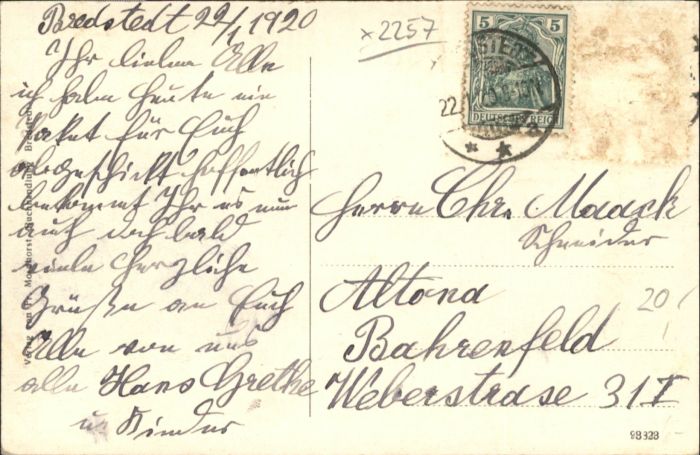 Bredstedt 22/1 1920
Ihr lieben Alle
ich habe heute ein
Paket für Euch
abgeschickt hoffentlich
bekommt Ihr es nun
auch doch bald
viele herzliche
Grüße an Euch
Alle von uns
alle Hans Grethe
u. Kinder
x2257
5 5
DEUTSCHES REICH
22
Herrn Chr. Maack
Schneider
Altona
Bahrenfeld
Weberstrase 31 I
20
Verlag von Fr. Buchhandlung, Bredstedt
98328